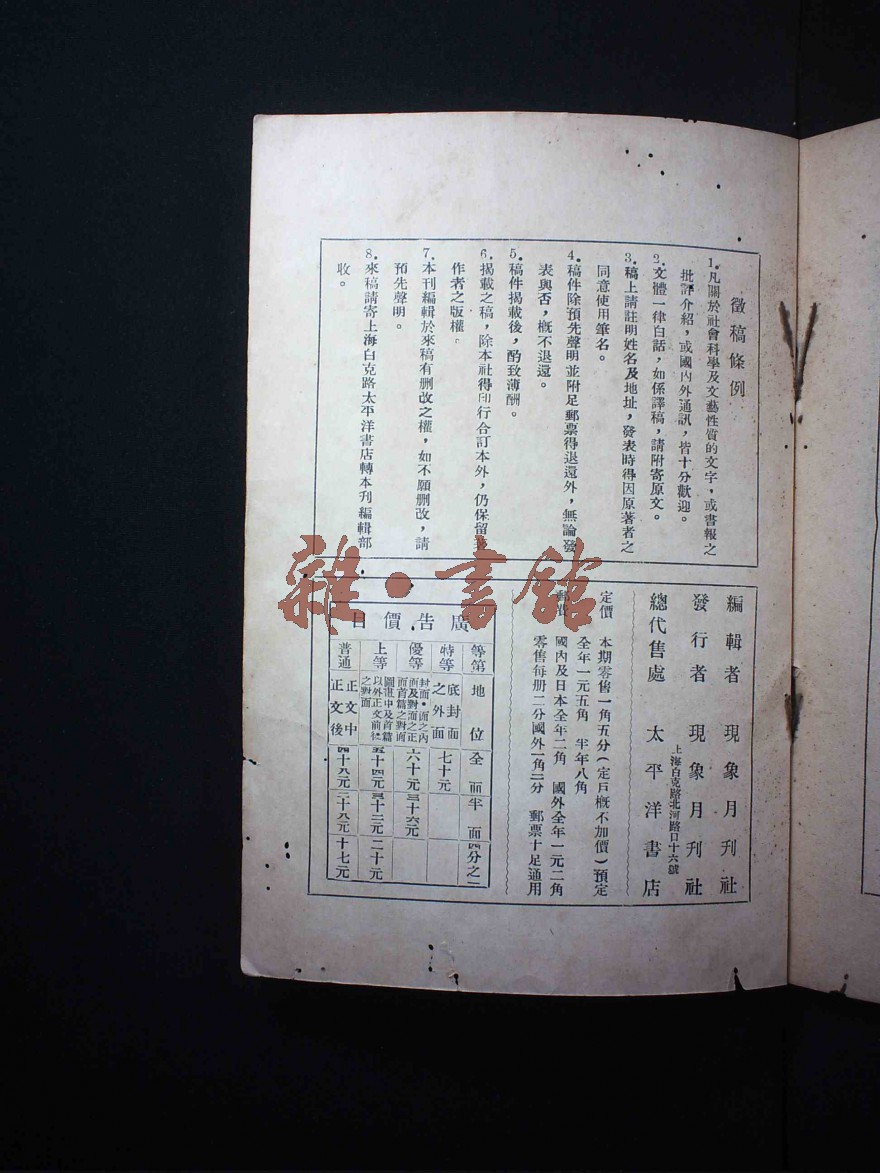 徵稿條例
1.凡關於社會科學及文藝性質的文字，或書報之
批評介紹，或國內外通訊，皆十分歡迎。
2.文體一律白話，如係譯稿，請附寄原文。
3.稿上請註明姓名及地址，發表時得因原著者之
同意使用筆名。
4.稿件除預先聲明並附足郵票得退還外，無論發
表與否，概不退還。
5.稿件揭載後，酌致薄酬。
6.揭載之稿，除本社得印行合訂本外，仍保留
作者之版權。
7.本刊編輯於來稿有刪改之權，如不願刪改，請
預先聲明。
8.來稿請寄上海白克路太平洋書店轉本刊編輯部
收。
編輯者 現象月刊社
發行者 現象月刊社
上海白克路北河路口十六號
總代售處 太平洋書店
定價 本期零售一角五分（定戶概不加價）預定
全年一元五角 半年八角
郵費 國內及日本全年二角 國外全年一元二角
零售每册二分國外一角二分 郵票十足通用
廣告價目
等第 地位 全面 半面 四分之一
特等 底封面之外面 七十元
優等 封面・面之內面及對面之正面首篇之對面 六十元 三十六元
上等 圖畫中及首篇以外正文前後之對面 五十四元 三十二元 二十元
普通 正文中正文後 四十八元 二十八元 十七元
雜・書館